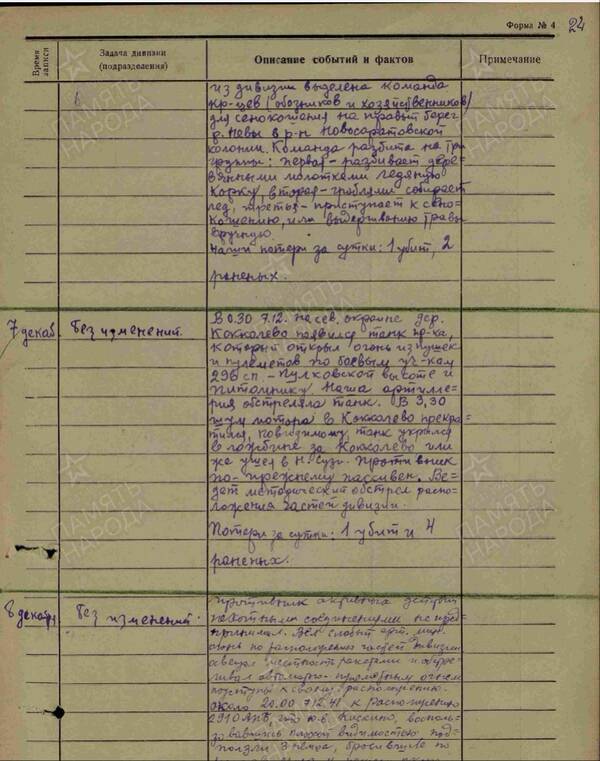 Форма № 4 24
Время записи
Задача дивизии
(подразделения)
Описание событий и фактов
Примечание
из дивизии выделена команда
кр-цев (обозников и хозяйственников)
для сенокошения на правый берег
р. Невы в р-н Новосаратовской
колонии. Команда разбита на три
группы: первая - разбивает дере-
вянными молотками ледяную
корку, вторая - граблями собирает
лед, третья - приступает к сено-
кошению, или выдергиванию травы
вручную
Наши потери за сутки: 1 убит, 2
раненых.
7 декаб. Без изменений. В 0.30 7.12. на сев. окраине дер.
Кокколево появился танк пр-ка,
который открыл огонь из пушек
и пулеметов по боевым уч-кам
296 сп - Пулковской высоте и
Питомнику. Наша артилле-
рия обстреляла танк. В 3,30
шум мотора в Кокколево прекра-
тился, повидимому, танк укрылся
в ложбине за Кокколево или
же ушел в Н. Сузи. Противник
по-прежнему пассивен. Ве-
дет методический обстрел распо-
ложения частей дивизии.
Потери за сутки: 1 убит и 4
раненых.
8 декабря Без изменений. Противник активных действий
пехотными соединениями не пред-
принимал. Вел слабый арт. мин.
огонь по расположению частей дивизии
освещал местность ракетами и обстре-
ливал автоматно-пулеметным огнем
подступы к своему расположению.
Около 20.00 7.12.41 к расположению
291 ОАПБ, что ю.в. Кискино, восполь-
зовавшись плохой видимостью под-
ползли 3 немца, бросившие по
ПАМЯТЬ
НАРОДА
ПАМЯТЬ
НАРОДА
ПАМЯТЬ
НАРОДА
ПАМЯТЬ
НАРОДА